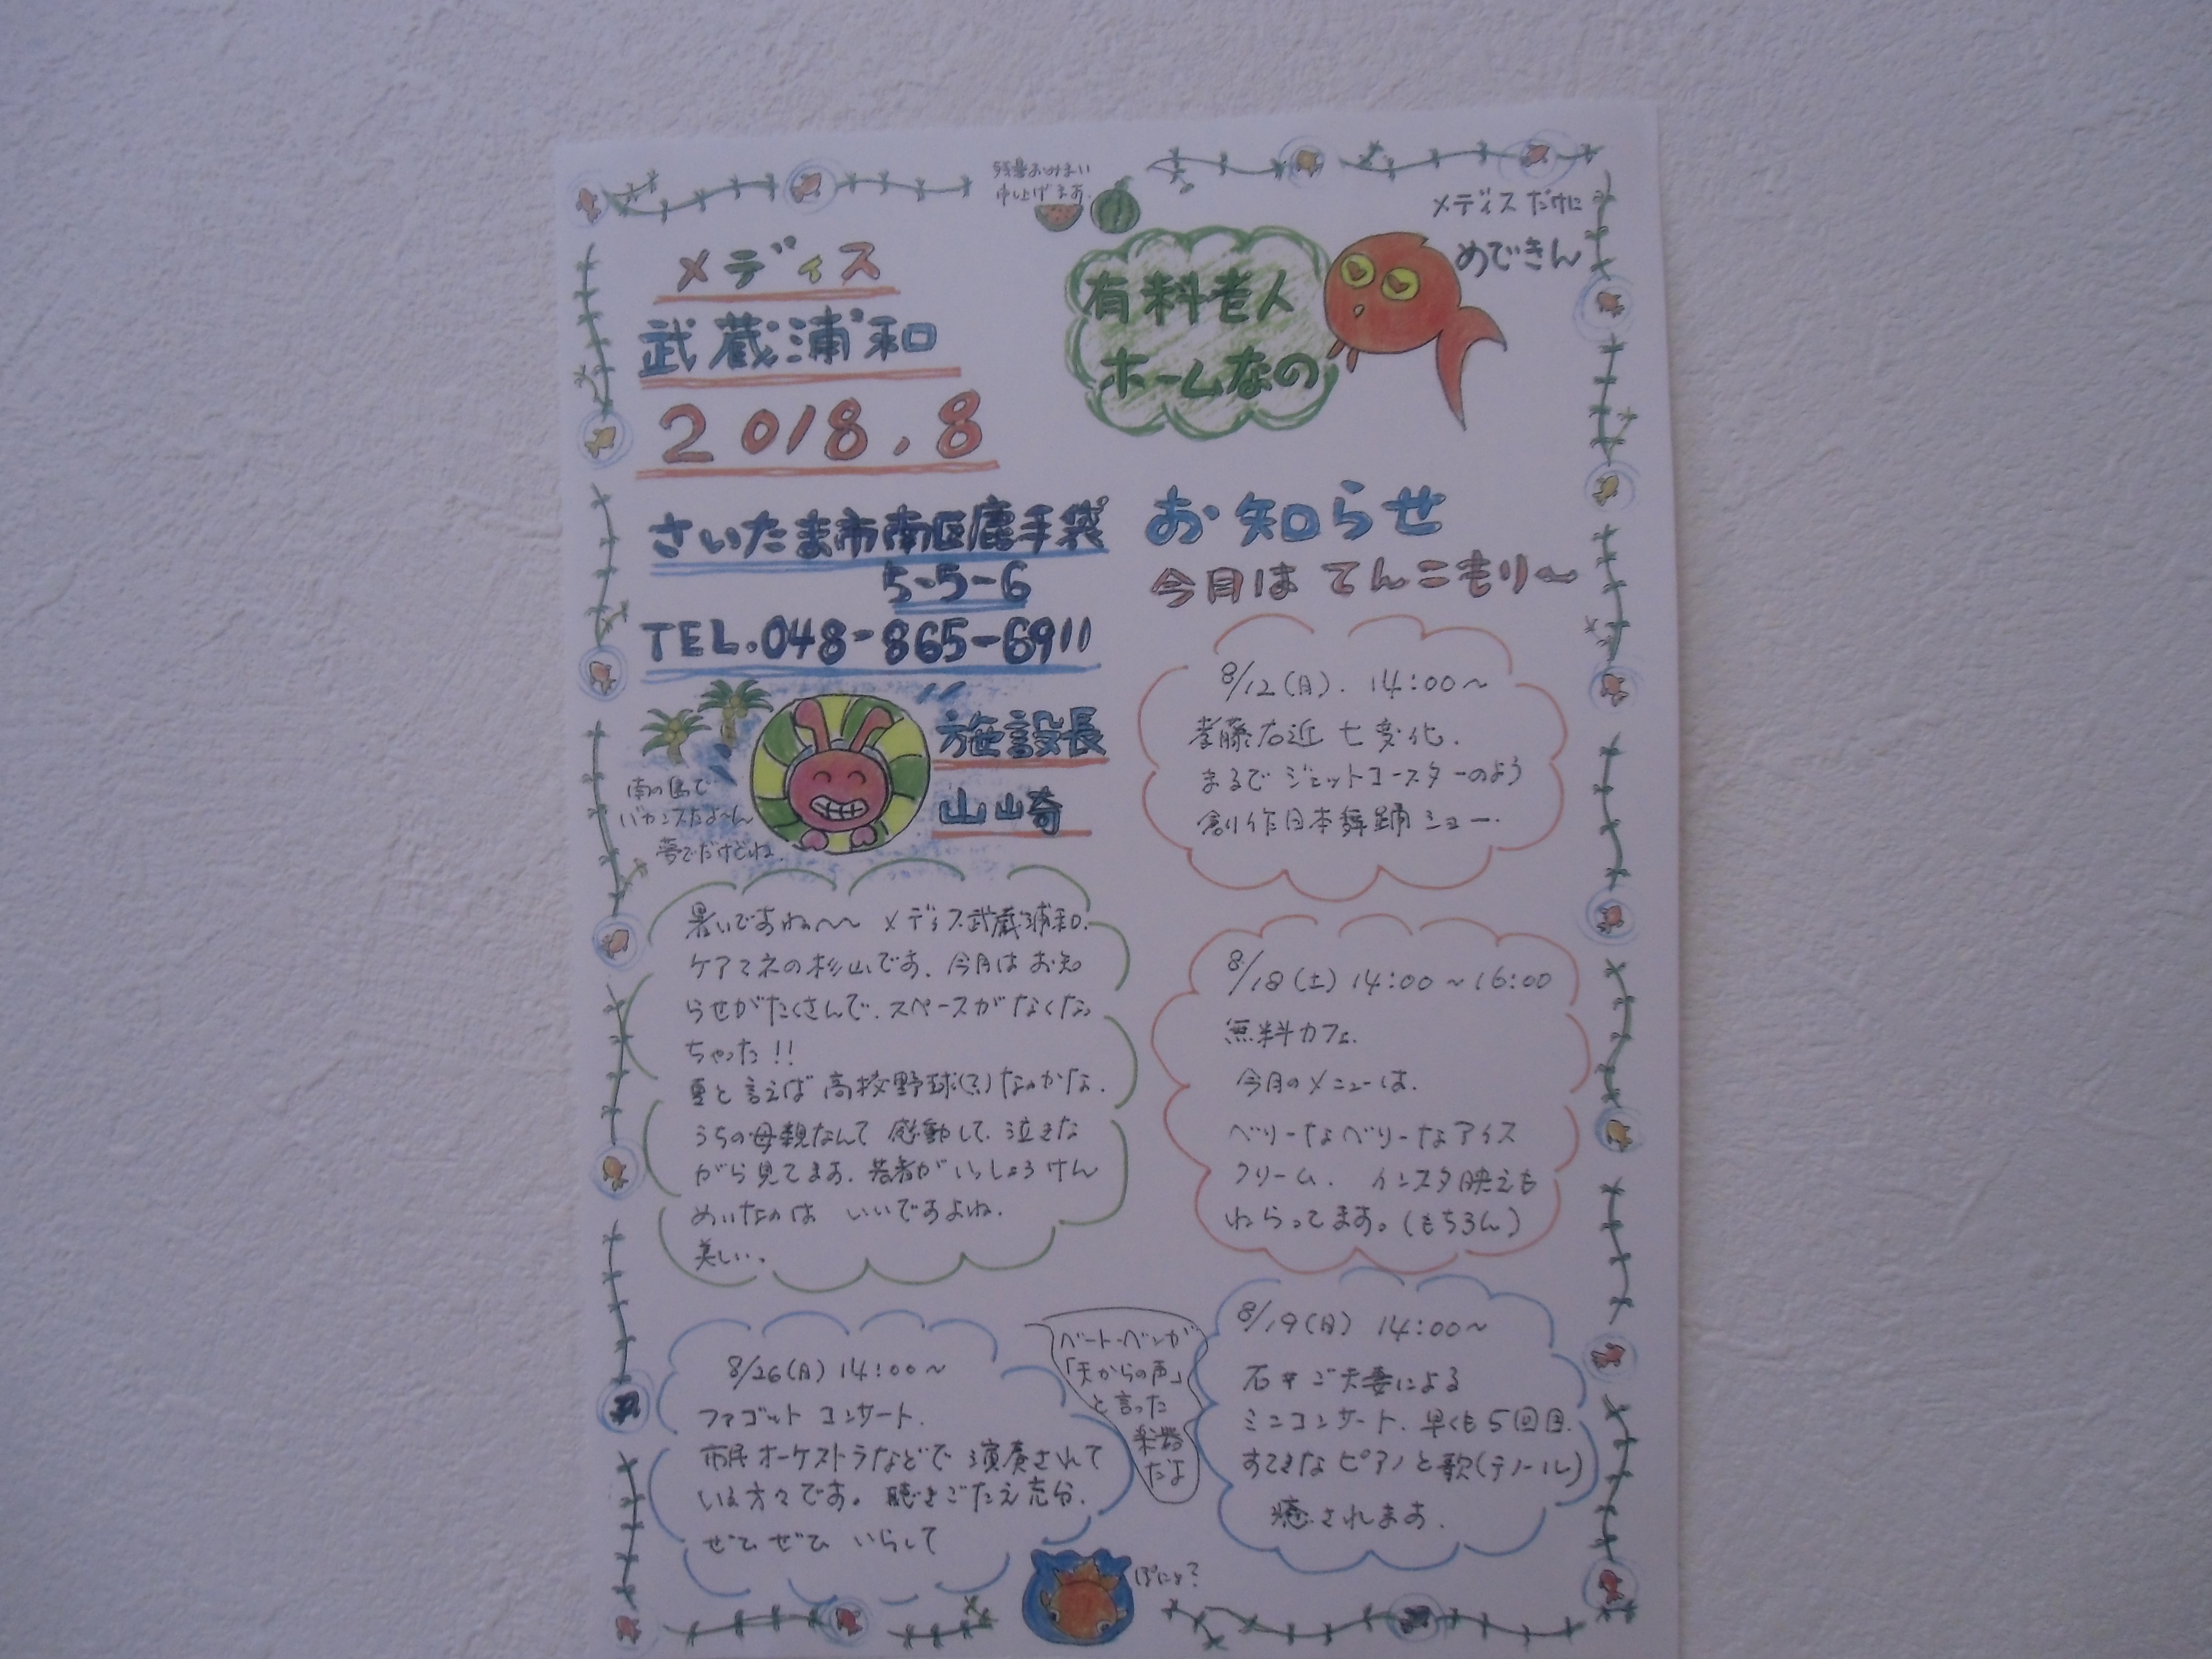 残暑おみまい
申し上げます。
メディス
武蔵浦和
2018.8
有料老人
ホームなの
メディスだけに
めできん
さいたま市南区鹿手袋
5-5-6
TEL.048-865-6911
施設長
山崎
南の島で
バカンスだよ～ん
夢でだけどね。
お知らせ
今月はてんこもり～
8/12(月). 14:00～
孝藤右近 七変化.
まるでジェットコースターのよう
創作日本舞踊ショー.
暑いですねぇ～～ メディス武蔵浦和.
ケアマネの杉山です。今月はお知
らせがたくさんで、スペースがなくなっ
ちゃった!!
夏と言えば高校野球(?)なのかな.
うちの母親なんて 感動して、泣きな
がら見てます。若者がいっしょうけん
めいなのは いいですよね.
美しい.
8/18(土) 14:00～16:00
無料カフェ.
今月のメニューは.
ベリーなベリーなアイス
クリーム. インスタ映えも
ねらってます。(もちろん)
8/19(日) 14:00～
石井ご夫妻による
ミニコンサート. 早くも5回目.
すてきなピアノと歌(テノール)
癒されます.
8/26(月) 14:00～
ファゴット コンサート.
市民オーケストラなどで 演奏されて
いる方々です。聴きごたえ充分.
ぜひぜひ いらして
ベートーベンが
「天からの声」
と言った
楽器
だよ
ぽにょ?